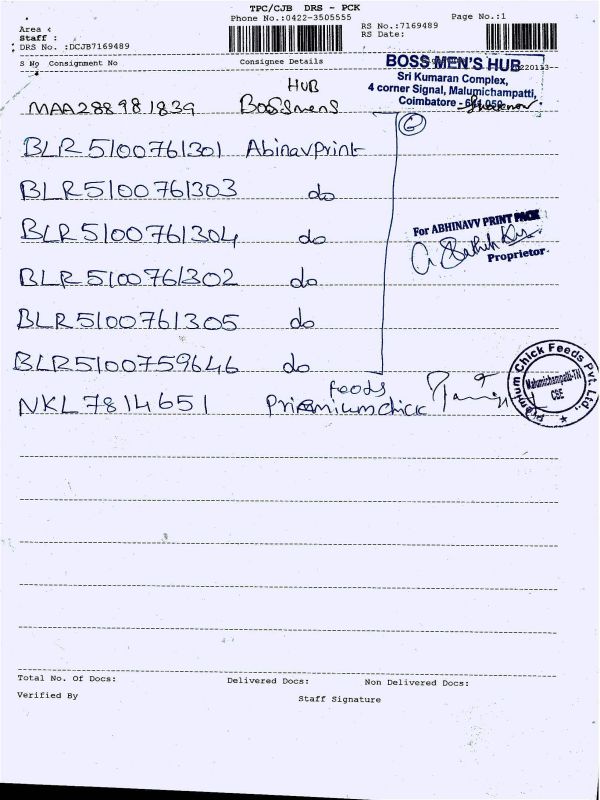 TPC/CJB DRS - PCK
Phone No.:0422-3505555
Page No.:1
Area :
Staff :
DRS No. :DCJB7169489
RS No.:7169489
RS Date:
S No Consignment No Consignee Details
BOSS MEN'S HUB
Sri Kumaran Complex,
4 corner Signal, Malumichampatti,
Coimbatore - 641 050
HUB
MAA288981839 Bossmens
6
BLR5100761301 Abinavprint
BLR5100761303 do
BLR5100761304 do
For ABHINAVV PRINT PACK
Proprietor
BLR5100761302 do
BLR5100761305 do
BLR5100759646 do
foods
NKL7814651 Primiumchick
Premium Chick Feeds Pvt. Ltd.,
Malumichampatti-TN
CSE
Total No. Of Docs: Delivered Docs: Non Delivered Docs:
Verified By Staff Signature